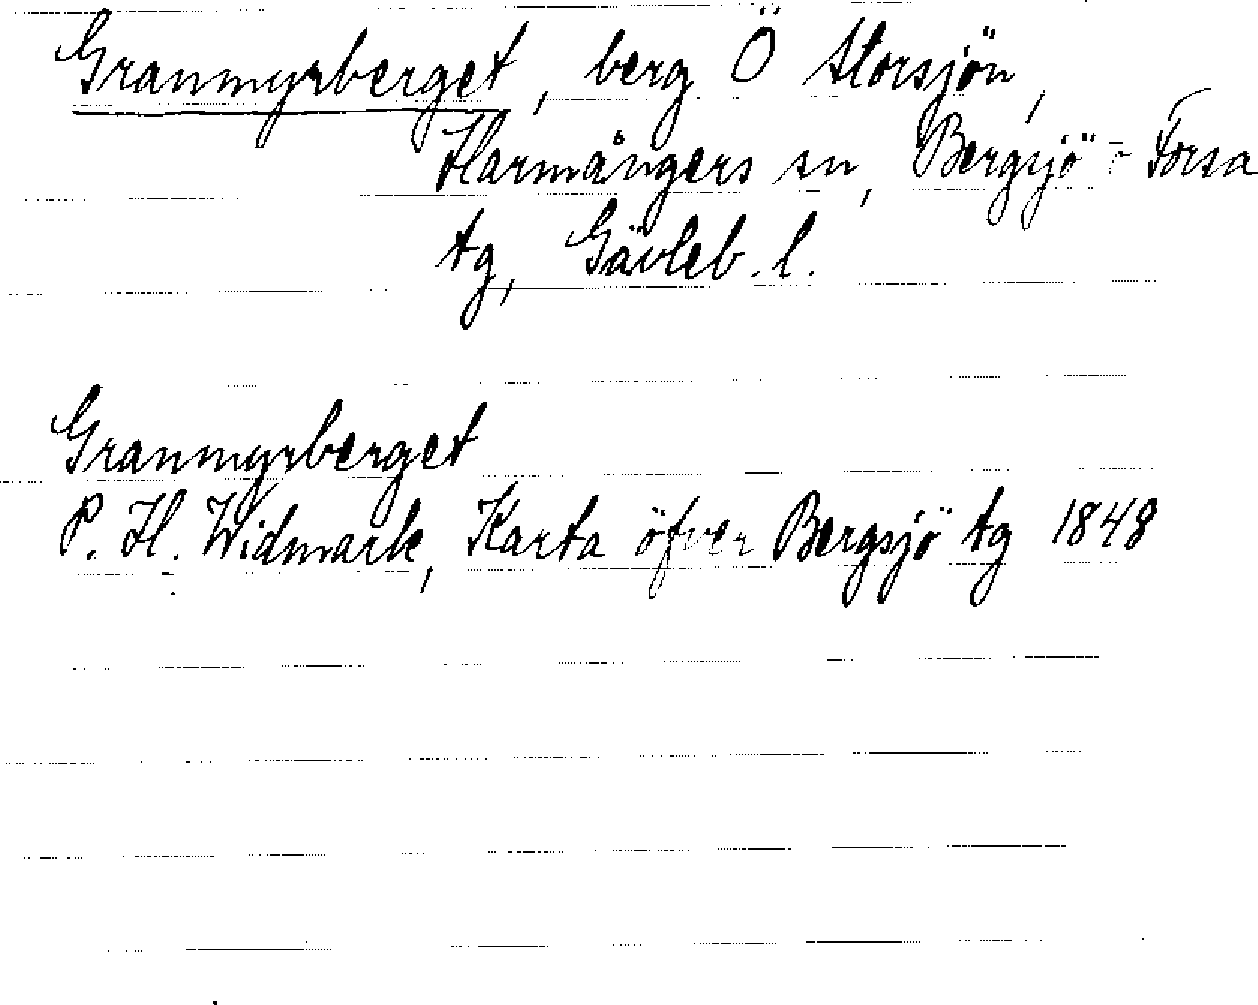 Granmyrberget, berg Ö Storsjön,
Harmångers sn, Bergsjö - Forsa
tg, Gävleb. l.
Granmyrberget
P. H. Widmark, Karta öfver Bergsjö tg 1848